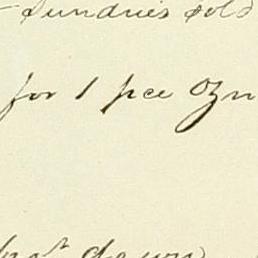 Sundries sold
for 1 pce Ozn